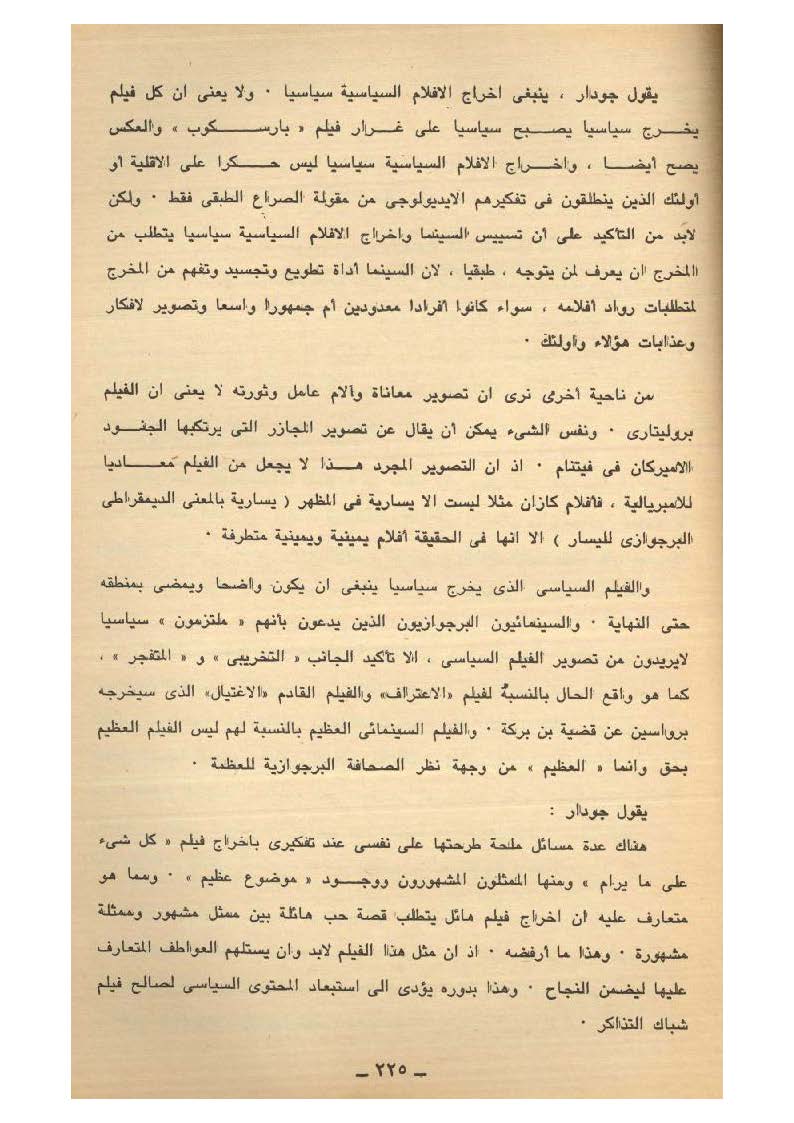 يقول جودار ، ينبغى اخراج الافلام السياسية سياسيا ٠ ولا يعنى ان كل فيلم
يخــرج سياسيا يصــبح سياسيا على غــرار فيلم « بارســكوب » والعكس
يصح أيضــا ، واخــراج الافلام السياسية سياسيا ليس حــكرا على الاقلية أو
أولئك الذين ينطلقون فى تفكيرهم الايديولوجى من مقولة الصراع الطبقى فقط ٠ ولكن
لابد من التأكيد على أن تسييس السينما واخراج الافلام السياسية سياسيا يتطلب من
المخرج ان يعرف لمن يتوجه ، طبقيا ، لان السينما أداة تطويع وتجسيد وتفهم من المخرج
لمتطلبات رواد أفلامه ، سواء كانوا أفرادا معدودين أم جمهورا واسعا وتصوير لافكار
وعذابات هؤلاء واولئك ٠
من ناحية أخرى نرى ان تصوير معاناة وآلام عامل وثورته لا يعنى ان الفيلم
بروليتارى ٠ ونفس الشىء يمكن أن يقال عن تصوير المجازر التى يرتكبها الجفــود
الاميركان فى فيتنام ٠ اذ ان التصوير المجرد هــذا لا يجعل من الفيلم معــاديا
للامبريالية ، فأفلام كازان مثلا ليست الا يسارية فى المظهر ( يسارية بالمعنى الديمقراطى
البرجوازى لليسار ) الا انها فى الحقيقة أفلام يمينية ويمينية متطرفة ٠
والفيلم السياسى الذى يخرج سياسيا ينبغى ان يكون واضحا ويمضى بمنطقه
حتى النهاية ٠ والسينمائيون البرجوازيون الذين يدعون بأنهم « ملتزمون » سياسيا
لايريدون من تصوير الفيلم السياسى ، الا تأكيد الجانب « التخريبى » و « المتفجر » ،
كما هو واقع الحال بالنسبة لفيلم «الاعتراف» والفيلم القادم «الاغتيال» الذى سيخرجه
برواسين عن قضية بن بركة ٠ والفيلم السينمائى العظيم بالنسبة لهم ليس الفيلم العظيم
بحق وانما « العظيم » من وجهة نظر الصحافة البرجوازية للعظمة ٠
يقول جودار :
هناك عدة مسائل ملحة طرحتها على نفسى عند تفكيرى باخراج فيلم « كل شىء
على ما يرام » ومنها الممثلون المشهورون ووجــود « موضوع عظيم » ٠ ومما هو
متعارف عليه ان اخراج فيلم هائل يتطلب قصة حب هائلة بين ممثل مشهور وممثلة
مشهورة ٠ وهذا ما أرفضه ٠ اذ ان مثل هذا الفيلم لابد وان يستلهم العواطف المتعارف
عليها ليضمن النجاح ٠ وهذا بدوره يؤدى الى استبعاد المحتوى السياسى لصالح فيلم
شباك التذاكر ٠
ـ ٢٢٥ ـ